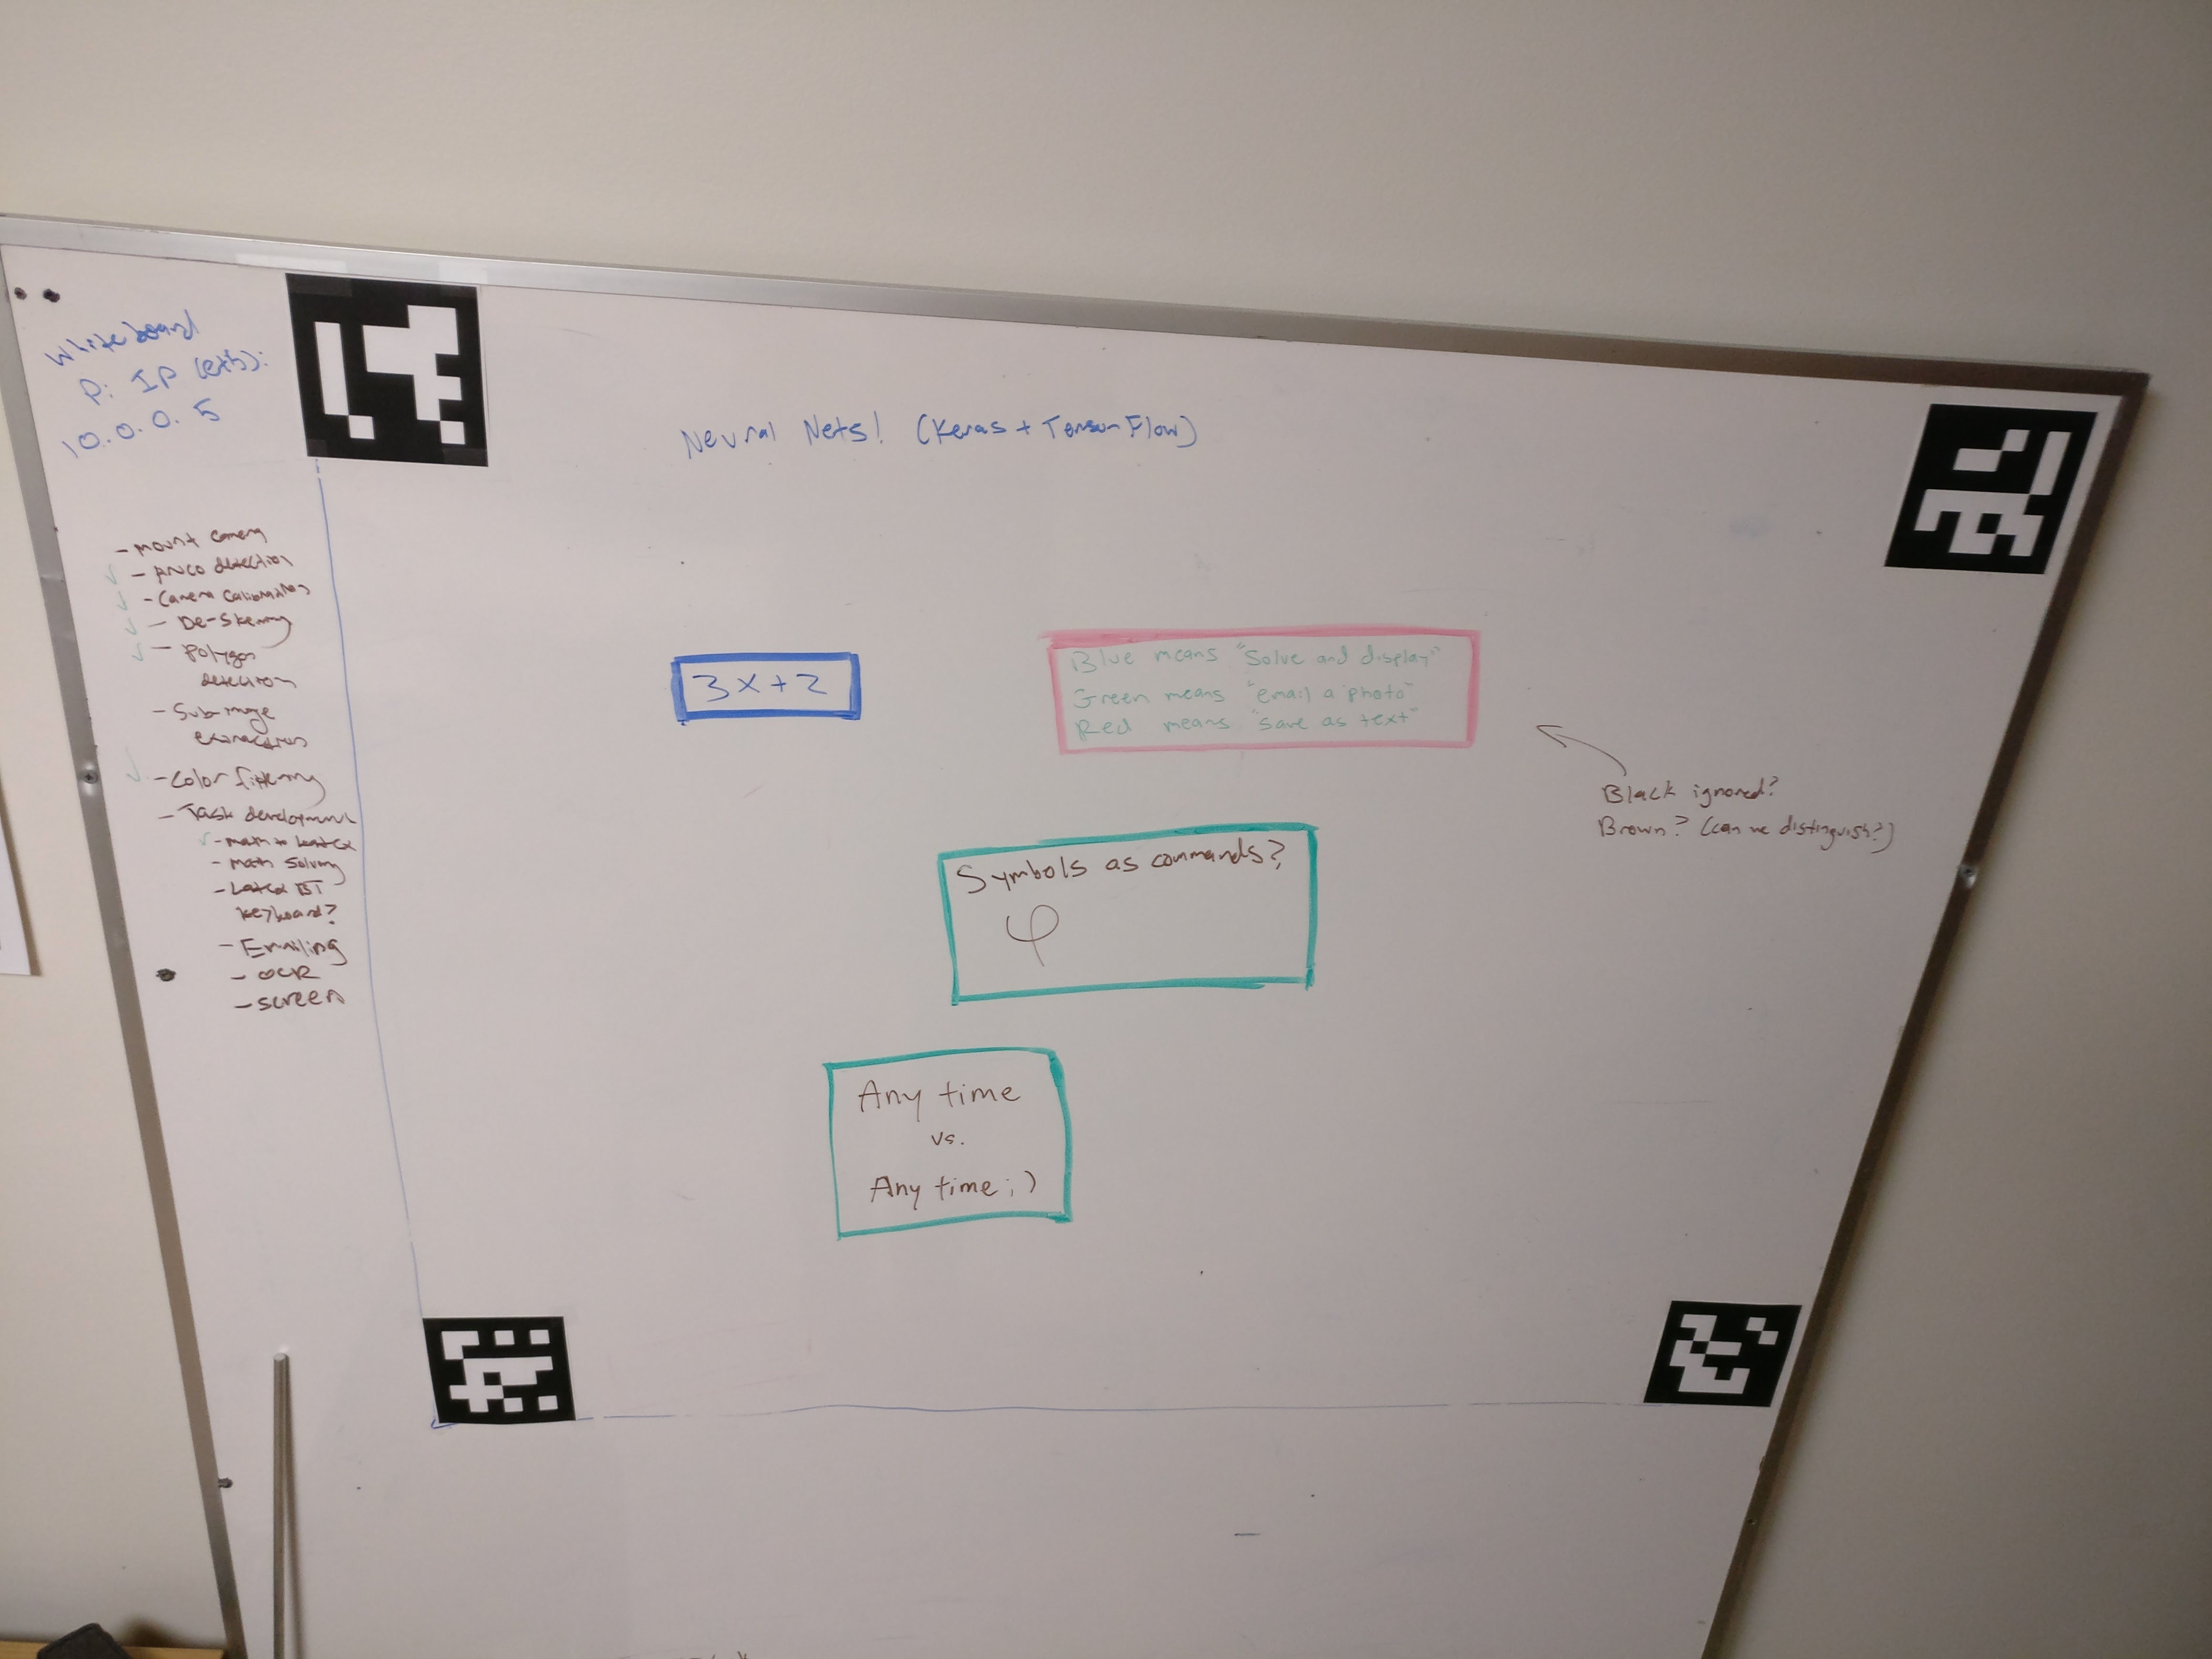 Whiteboard
Pi IP (eth):
10.0.0.5
Neural Nets! (Keras + TensorFlow)
- mount camera
- Aruco detection
- Camera Calibration
- De-skewing
- Polygon
detection
- Sub-image
extraction
- Color filtering
- Task development
- math to LaTeX
- math solving
- LaTeX BT
keyboard?
- Emailing
- OCR
- screen
3x+2
Blue means "Solve and display"
Green means "email a photo"
Red means "save as text"
Black ignored?
Brown? (can we distinguish?)
Symbols as commands?
φ
Any time
vs.
Any time ;)